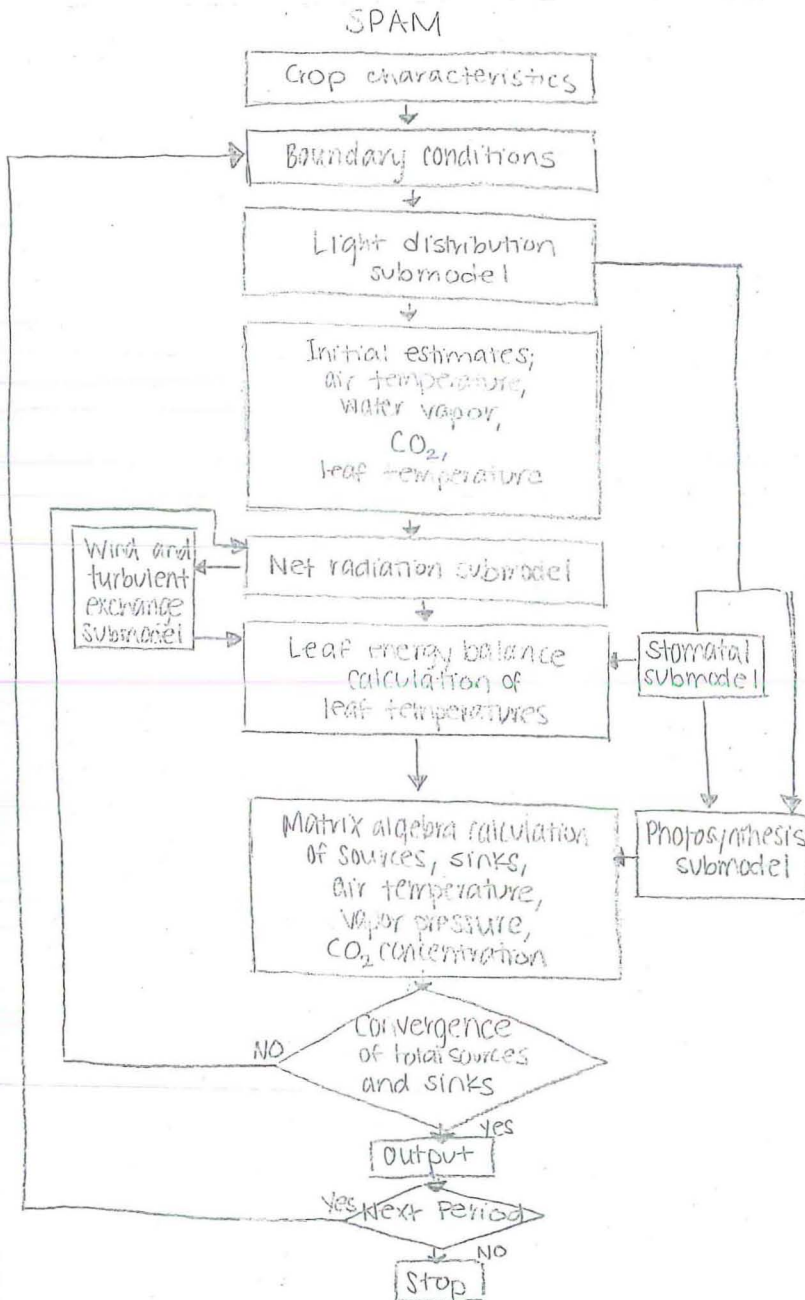 SPAM
Crop characteristics
Boundary conditions
Light distribution
submodel
Initial estimates;
air temperature,
water vapor,
CO₂,
leaf temperature
Wind and
turbulent
exchange
submodel
Net radiation submodel
Leaf energy balance
calculation of
leaf temperatures
Stomatal
submodel
Matrix algebra calculation
of sources, sinks,
air temperature,
vapor pressure,
CO₂ concentration
Photosynthesis
submodel
Convergence
of total sources
and sinks
NO
yes
Output
yes
Next Period
NO
Stop